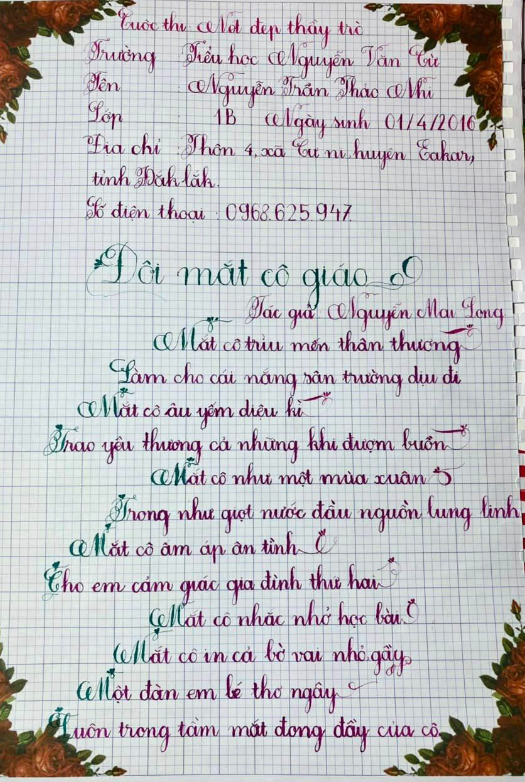 Cuộc thi Nét đẹp thầy trò
Trường Tiểu học Nguyễn Văn Cừ
Tên Nguyễn Trần Thảo Nhi
Lớp 1B Ngày sinh 01/4/2016
Địa chỉ : Thôn 4, xã Cư ni huyện Eakar,
tỉnh Đăk lăk.
Số điện thoại : 0968.625.947
Đôi mắt cô giáo
Tác giả Nguyễn Mai Long
Mắt cô trìu mến thân thương
Làm cho cái nắng sân trường dịu đi
Mắt cô âu yếm diệu kì
Trao yêu thương cả những khi đượm buồn
Mắt cô như một mùa xuân
Trong như giọt nước đầu nguồn lung linh
Mắt cô ấm áp ân tình
Cho em cảm giác gia đình thứ hai
Mắt cô nhắc nhở học bài
Mắt cô in cả bờ vai nhỏ gầy
Một đàn em bé thơ ngây
Luôn trong tầm mắt đong đầy của cô